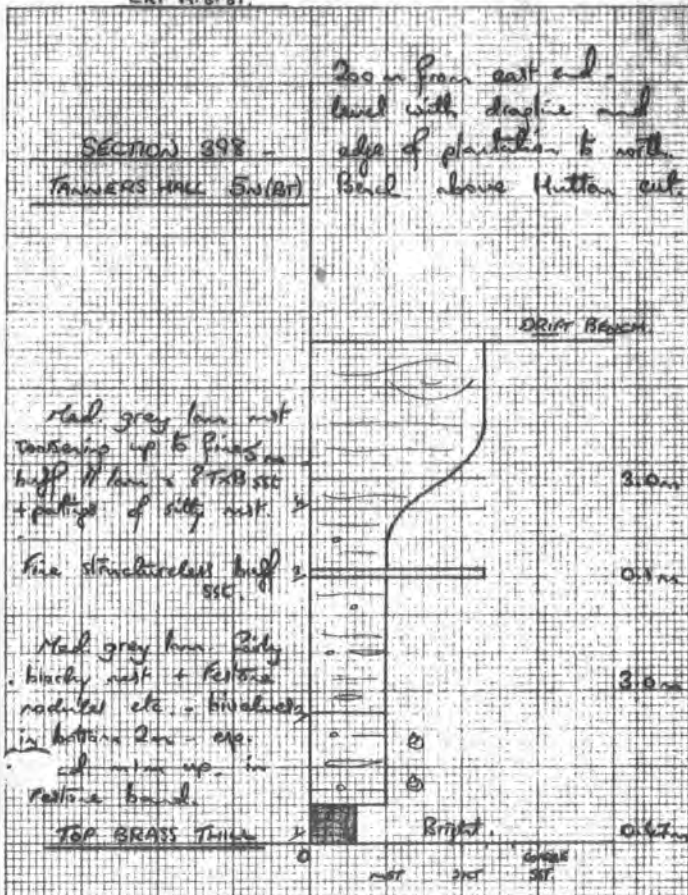 200 m from east end -
level with dragline and
edge of plantation to north.
Bench above Hutton cut.
SECTION 398 -
TANNERS HALL 5N(BT)
DRIFT BENCH.
Med. grey lam mst
coarsening up to fine
buff // lam + ? TXB sst
+ partings of silty mst.
3.0m
Fine structureless buff
sst.
0.1m
Med. grey lam.
blocky mst + Festone
nodules etc. - bivalves
in bottom 2m - esp.
up in
Festone band.
3.0m
TOP BRASS THILL
Bright.
0.47m
0
MST
SST